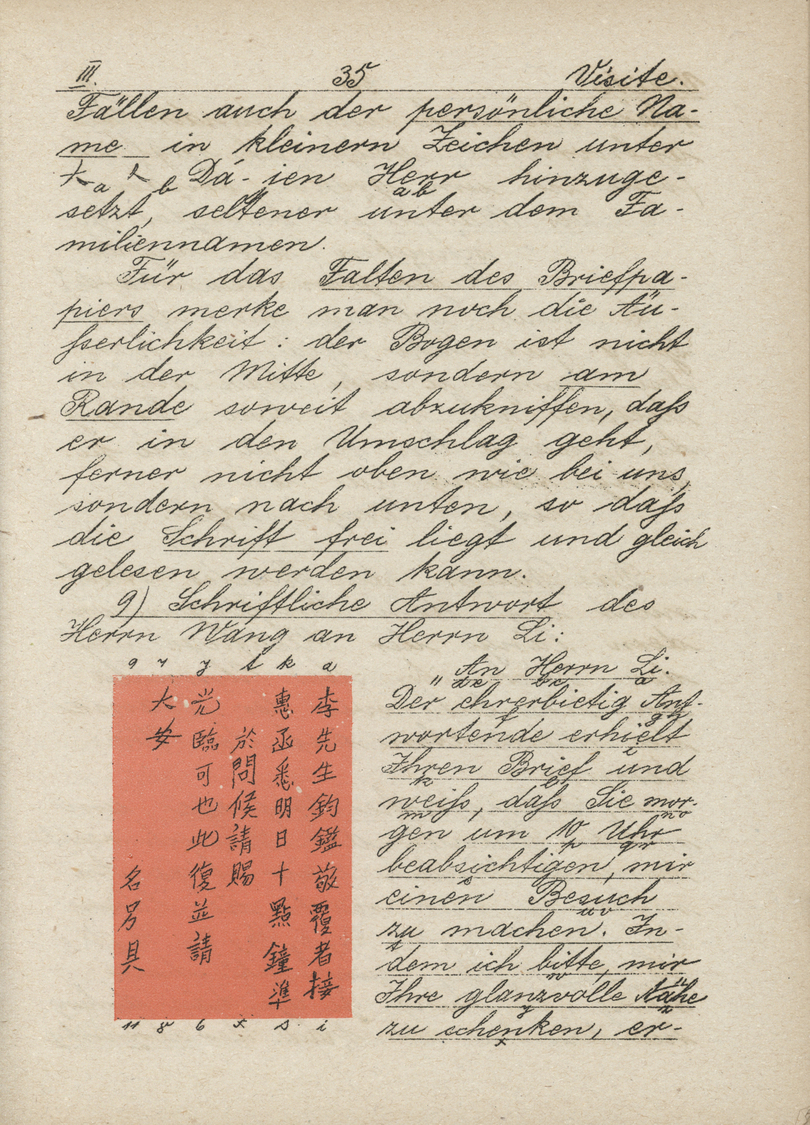 III. 35 Visite.
Fällen auch der persönliche Na-
me in kleinern Zeichen unter
大a 人b Dá-jen Herr hinzuge-
setzt, seltener unter dem Fa-
miliennamen.
Für das Falten des Briefpa-
piers merke man noch die Äu-
sserlichkeit: der Bogen ist nicht
in der Mitte, sondern am
Rande soweit abzukniffen, daß
er in den Umschlag geht,
ferner nicht oben wie bei uns,
sondern nach unten, so daß
die Schrift frei liegt und gleich
gelesen werden kann.
9) Schriftliche Antwort des
Herrn Wang an Herrn Li:
李先生鈞鑑敬覆者接
惠函悉明日十點鐘準
於問候請賜
光臨可也此復並請
大安
名另具
"An Herrn Li.
Der ehrerbietig Ant-
wortende erhielt
Ihren Brief und
weiß, daß Sie mor-
gen um 10 Uhr
beabsichtigen, mir
einen Besuch
zu machen. In-
dem ich bitte, mir
Ihre glanzvolle Nähe
zu schenken, er-